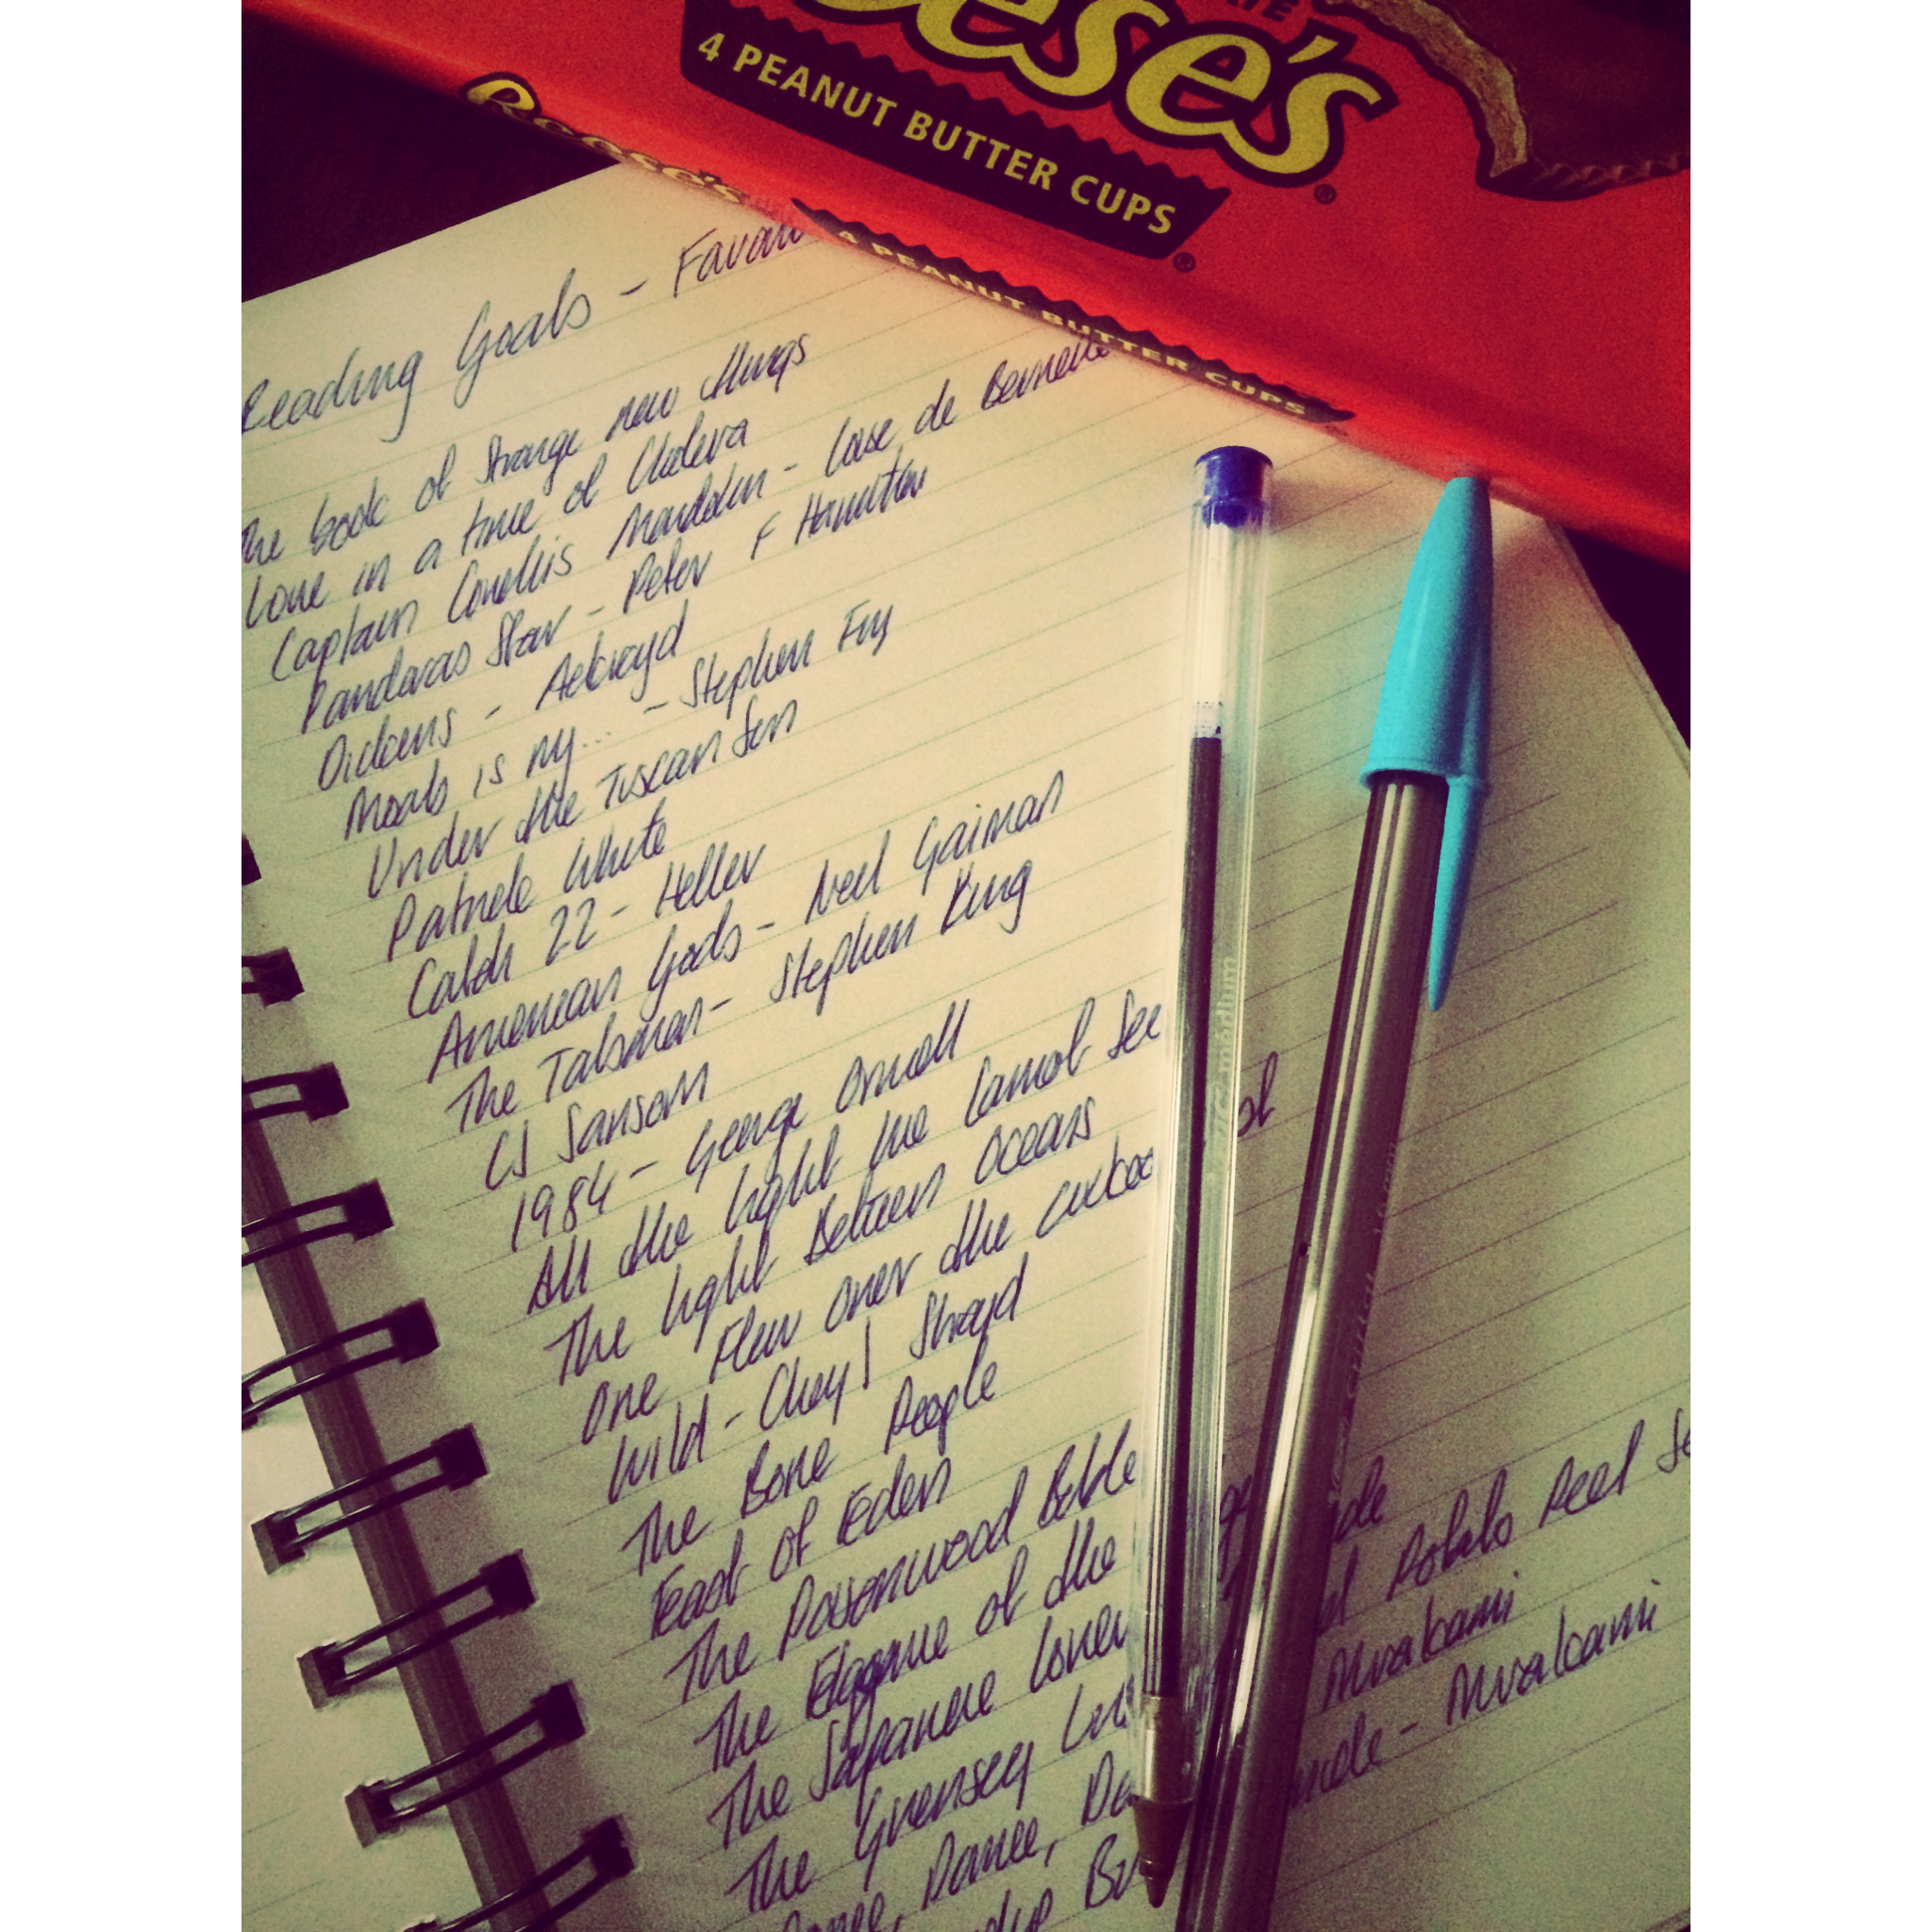 ese's
4 PEANUT BUTTER CUPS
Reese's
4 PEANUT BUTTER CUPS
Reading Goals - Favou
The book of Strange new things
Love in a time of Cholera
Captain Corellis Mandolin - Louse de Berneire
Pandoras Star - Peter F Hamilton
Dickens - Ackroyd
Moab is my... - Stephen Fry
Under the Tuscan Sun
Patrick White
Catch 22 - Heller
American Gods - Neil Gaiman
The Talisman - Stephen King
CJ Sansom
1984 - George Orwell
All the light we Cannot See
The light Between Oceans
One Flew over the cuckoo
Wild - Cheryl Strayd
The Bone People
East of Eden
The Poisonwood Bible
The Elegance of the
The Japanese Lover
The Guernsey Potato Peel
Dance, Murakami
Murakami
medium